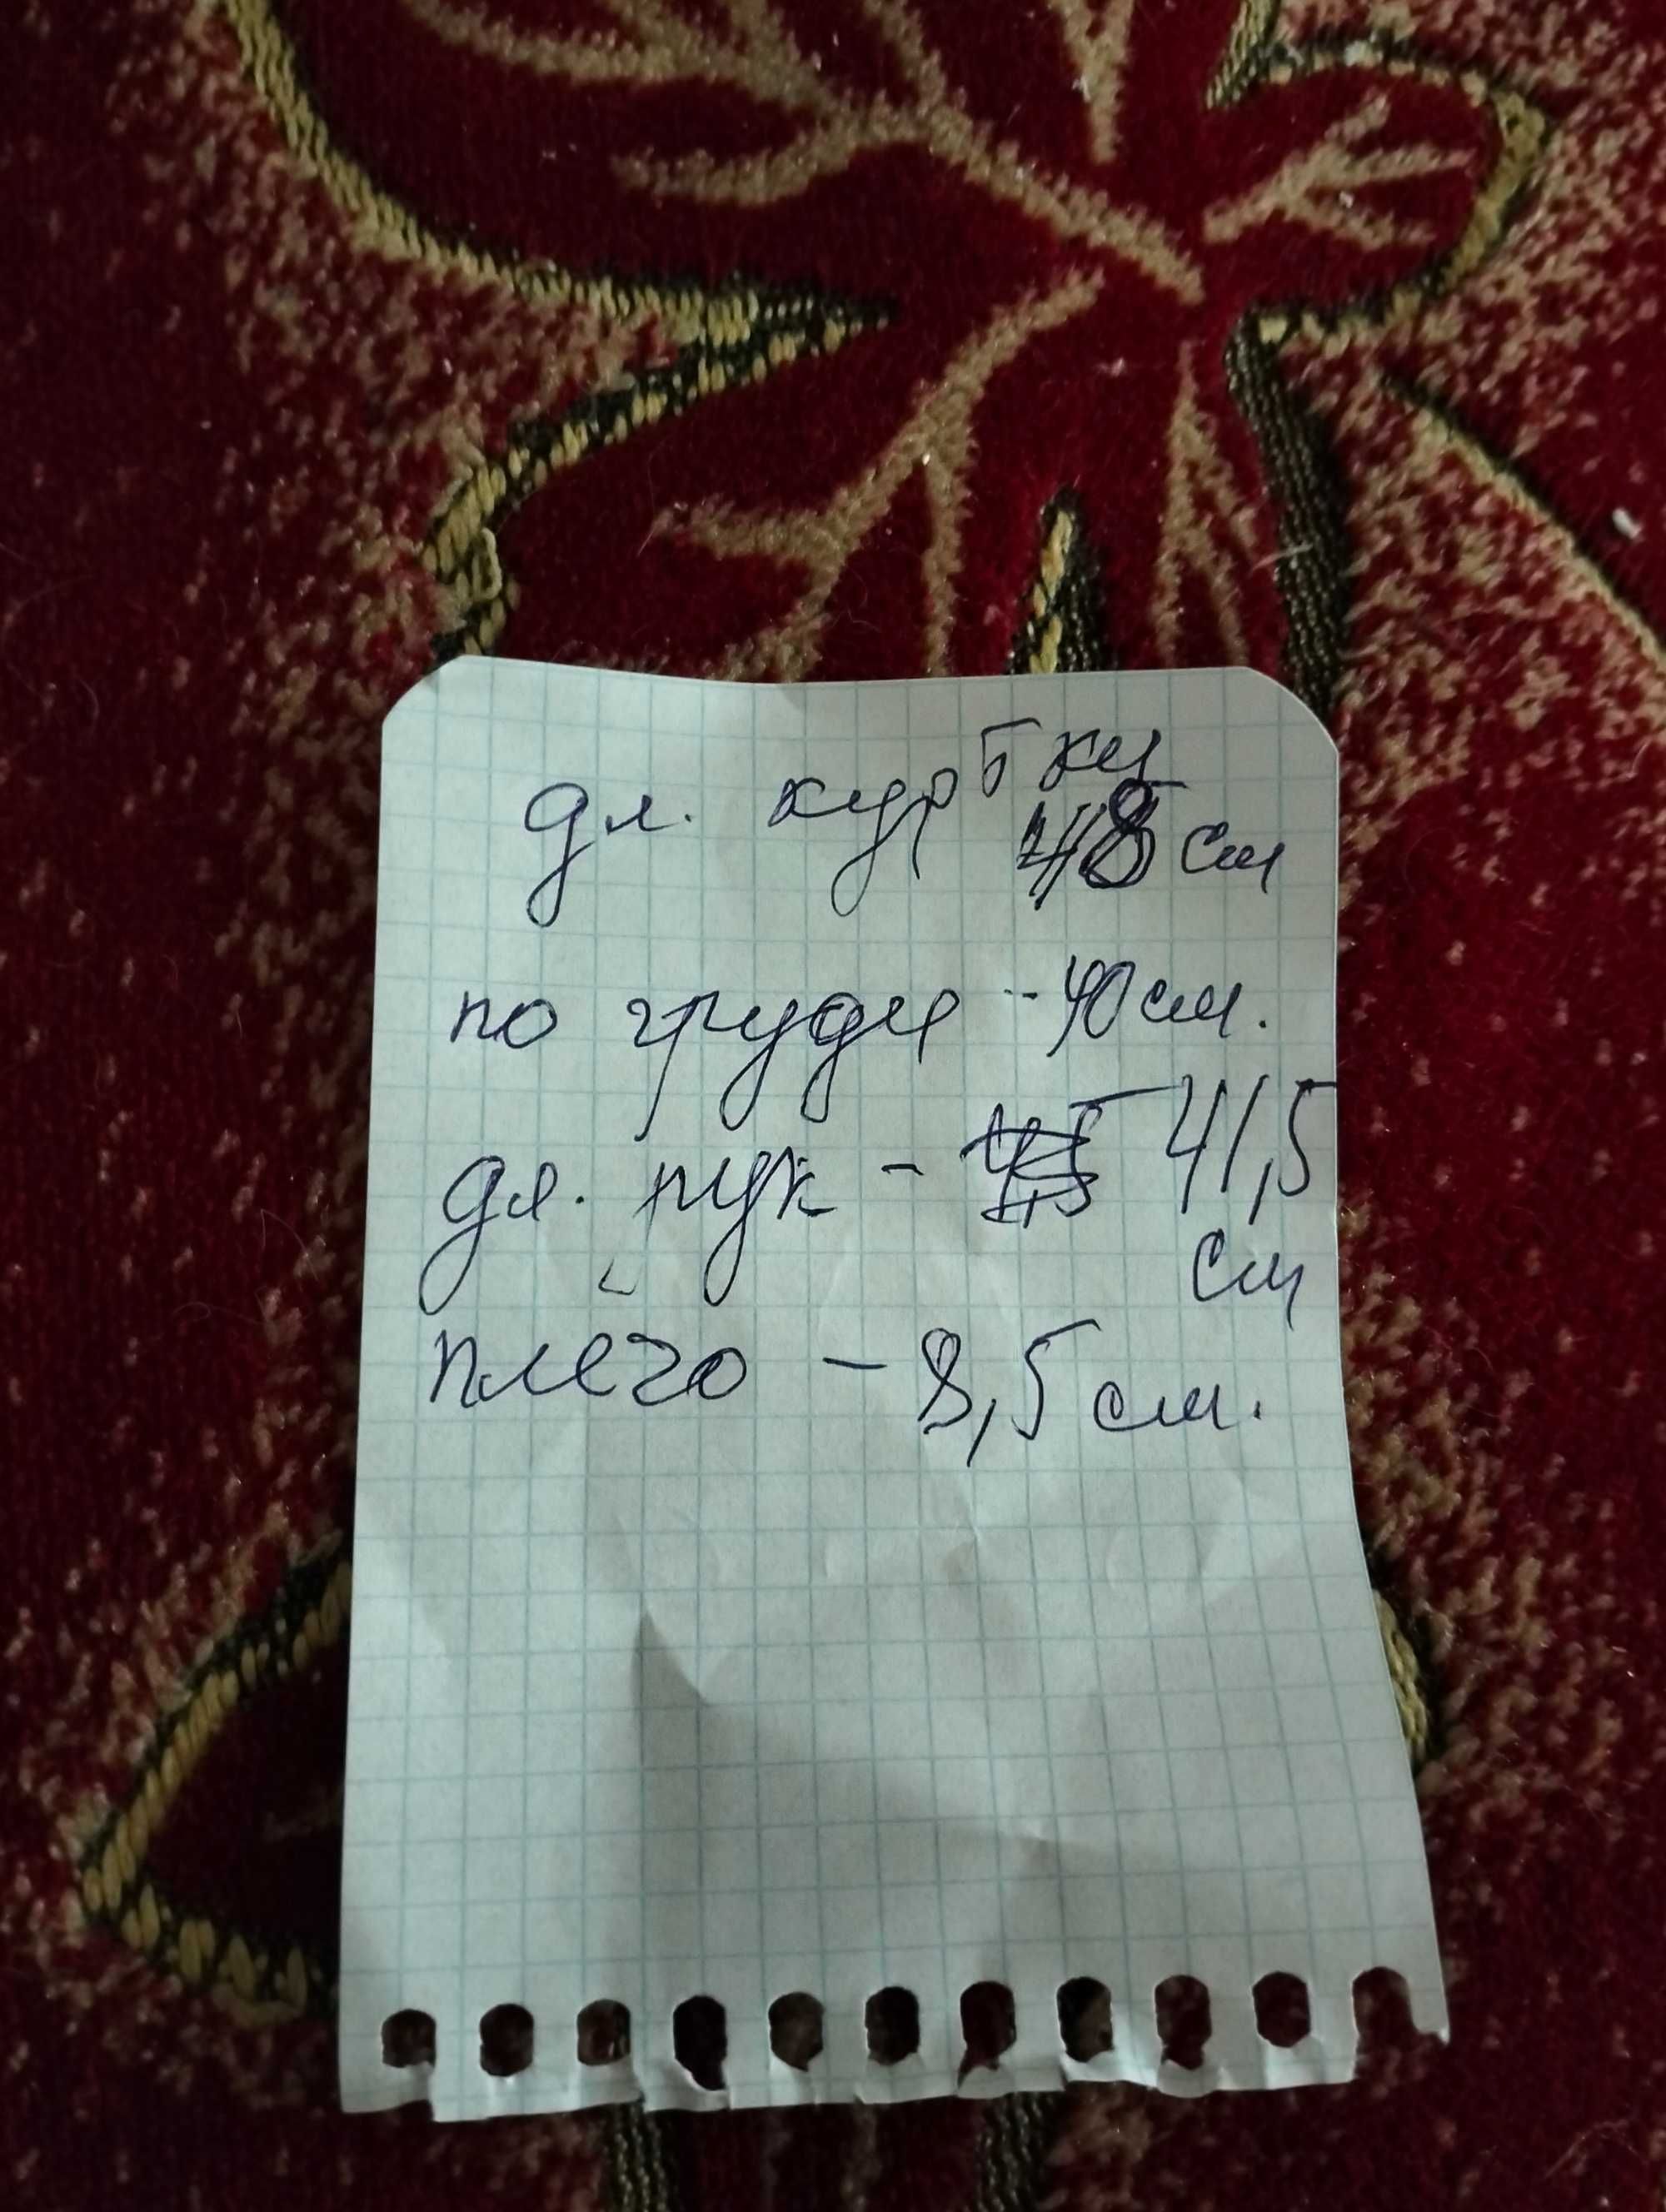 дл. куртки
48 см
по груди - 40 см.
дл. рук - 41,5
см
плечо - 8,5 см.